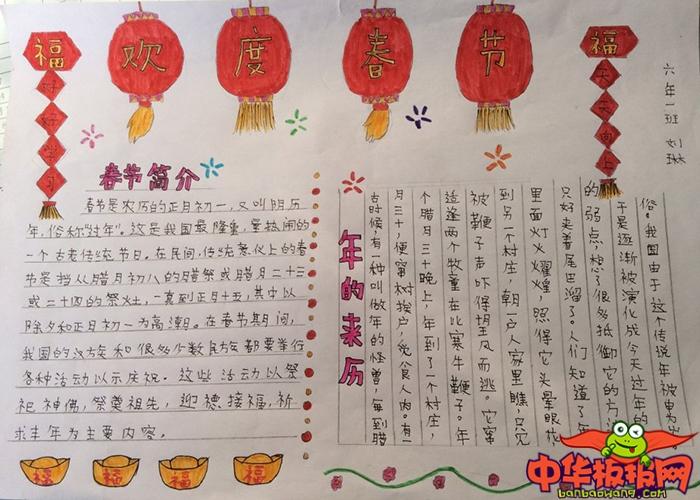 欢度春节
福
好好学习
福
天天向上
六年一班 刘琳
春节简介
春节是农历的正月初一,又叫阴历
年,俗称“过年”。这是我国最隆重,最热闹的
一个古老传统节日。在民间,传统意义上的春
节是指从腊月初八的腊祭或腊月二十三
或二十四的祭灶,一直到正月十五,其中以
除夕和正月初一为高潮。在春节期间,
我国的汉族和很多少数民族都要举行
各种活动以示庆祝。这些活动以祭
祀神佛,祭奠祖先,迎禧接福,祈
求丰年为主要内容。
年的来历
古时候,有一种叫做年的怪兽,每到腊
月三十,便窜村挨户,觅食人肉。有一
个腊月三十晚上,年到了一个村庄,
适逢两个牧童在比赛牛鞭子。年
被鞭子声吓得望风而逃。它窜
到另一个村庄,朝一户人家里瞧,只见
里面灯火耀煌,照得它头晕眼花
只好夹着尾巴溜了。人们知道了年
的弱点,想了很多抵御它的方
于是逐渐被演化成今天过年的
俗。我国由于这个传说被
福 福 福 福
中华板报网
banbaowang.com